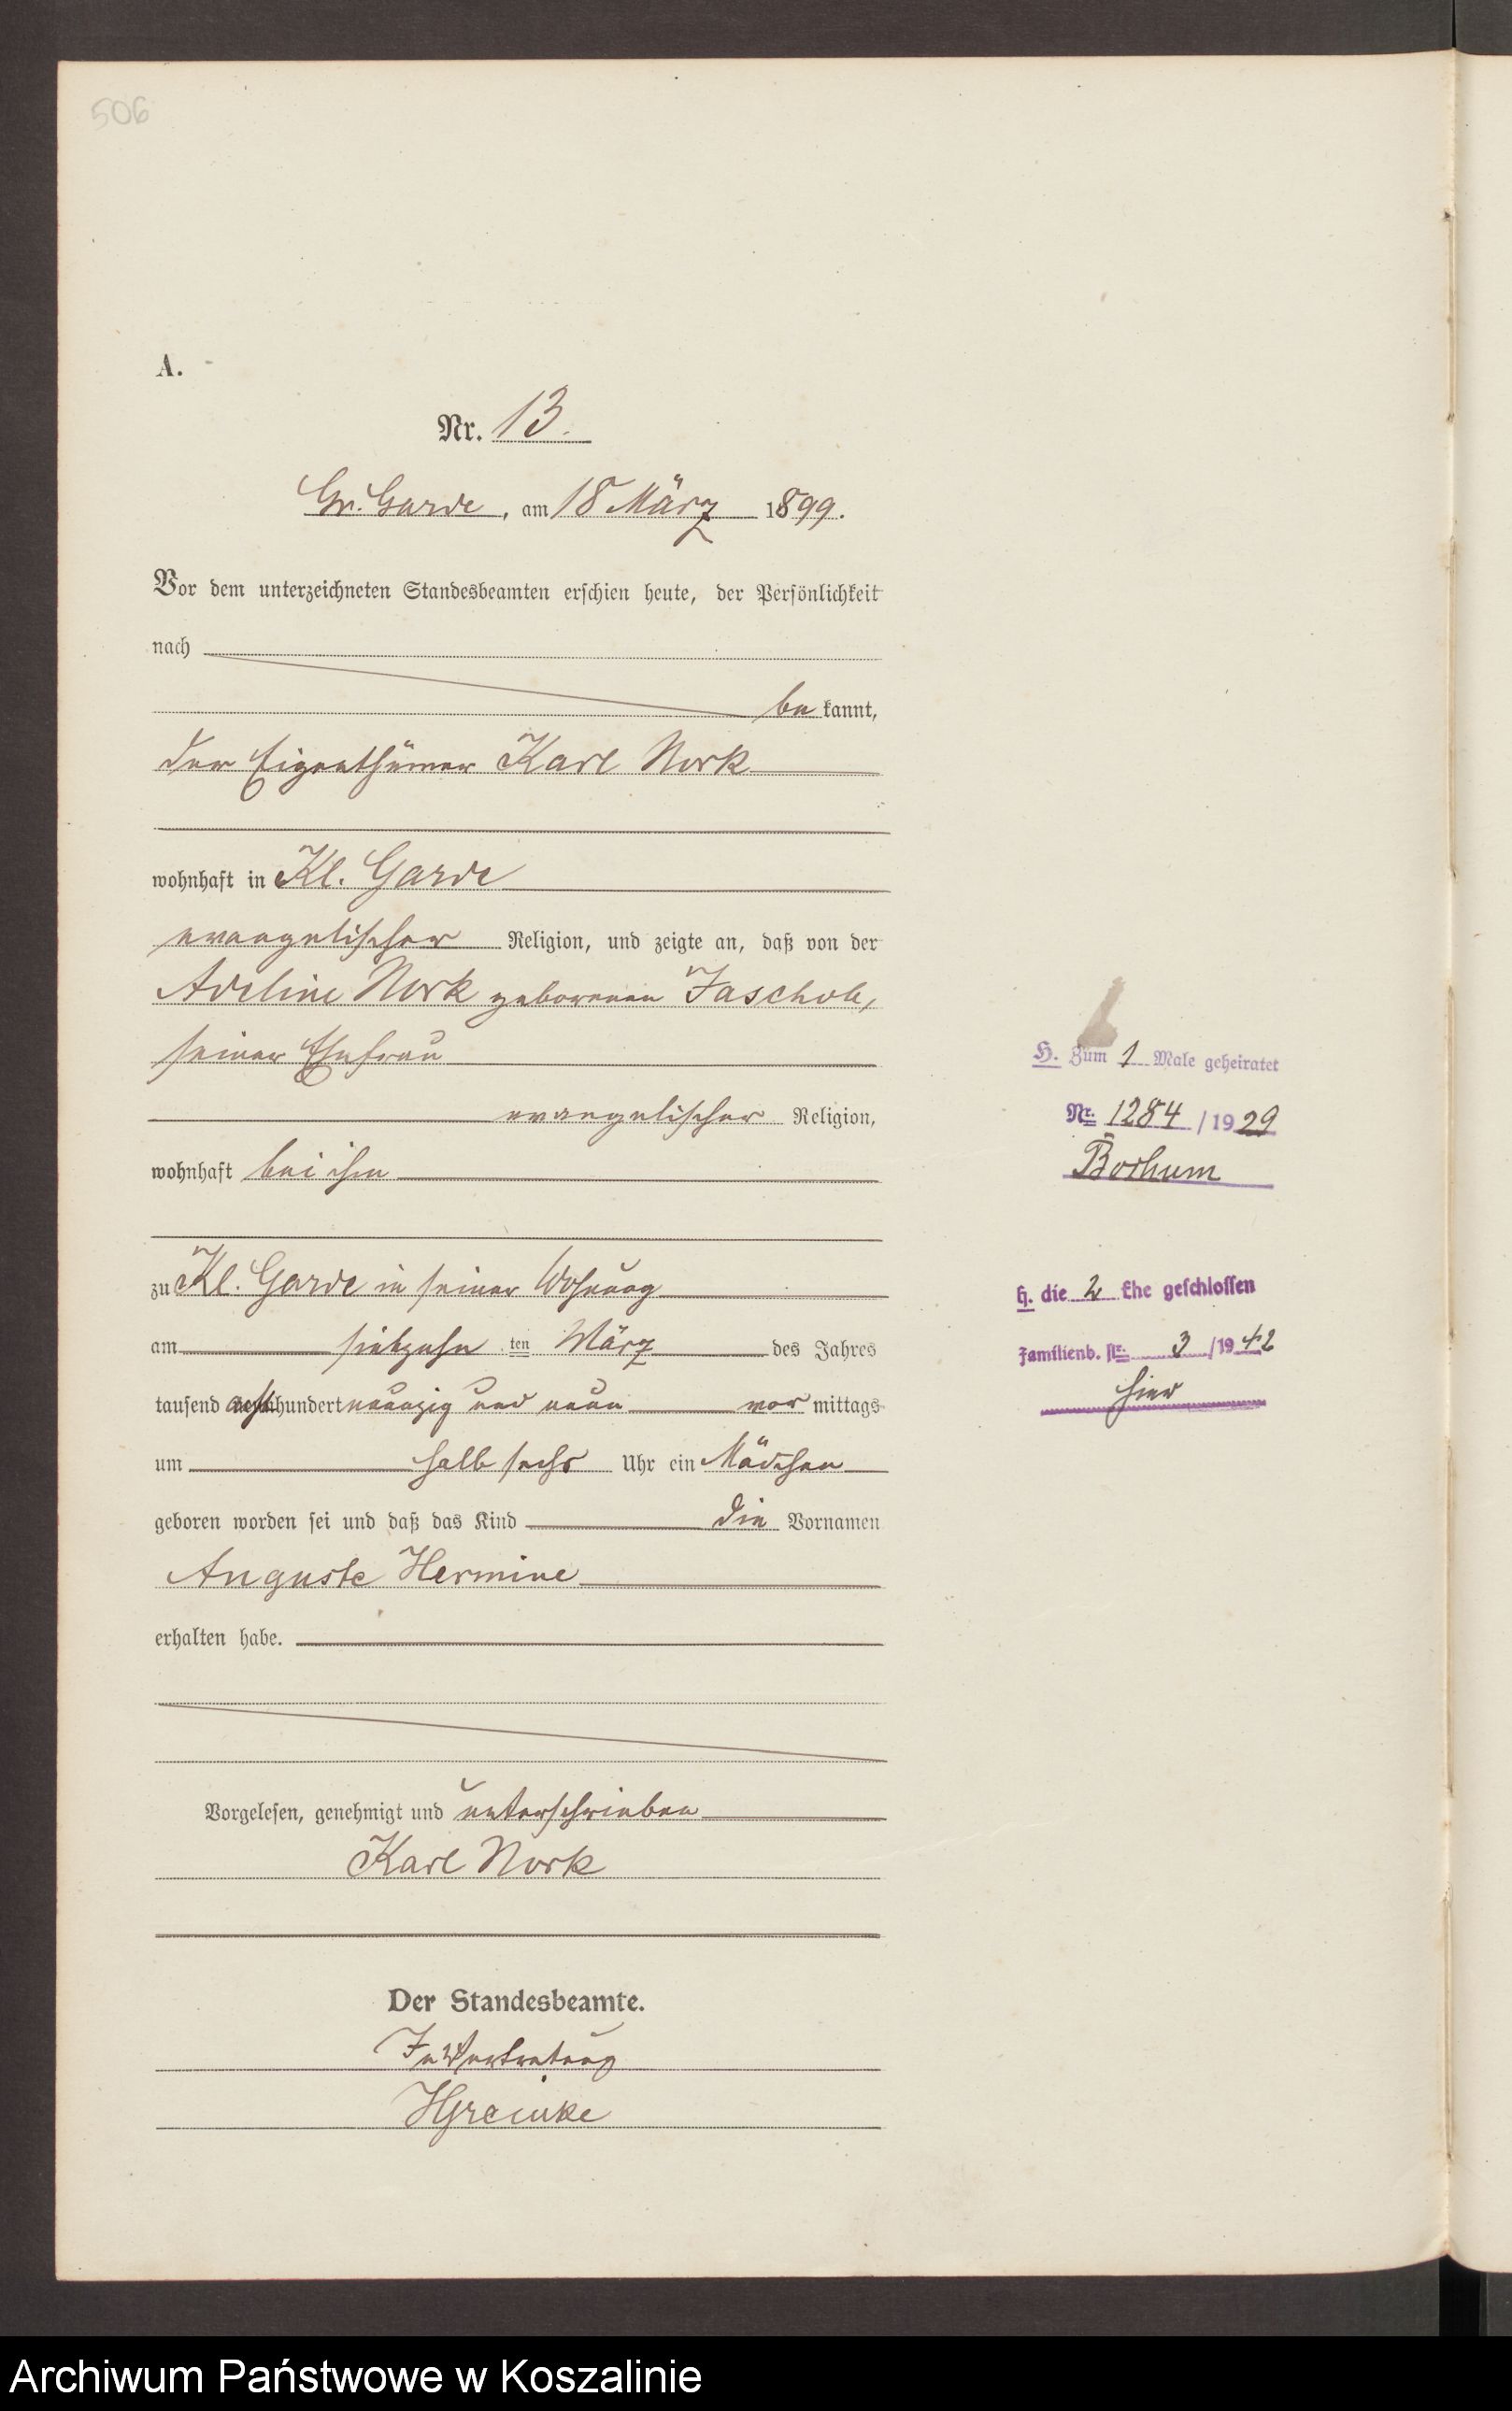 506
A.
Nr. 13.
Gr. Garde, am 18 März 1899.
Vor dem unterzeichneten Standesbeamten erschien heute, der Persönlichkeit
nach
be kannt,
der Eigenthümer Karl Nork
wohnhaft in Kl. Garde
evangelischer Religion, und zeigte an, daß von der
Adeline Nork geborenen Jaschob,
seiner Ehefrau
evangelischer Religion,
wohnhaft bei ihm
zu Kl. Garde in seiner Wohnung
am siebzehn ten März des Jahres
tausend acht hundert neunzig und neun vor mittags
um halb sechs Uhr ein Mädchen
geboren worden sei und daß das Kind die Vornamen
Auguste Hermine
erhalten habe.
Vorgelesen, genehmigt und unterschrieben
Karl Nork
Der Standesbeamte.
In Vertretung
H. Zum 1 Male geheiratet
Nr. 1284 / 1929
Bochum
H. die 2 Ehe geschlossen
Familienb. Nr. 3 / 1942
hier
Archiwum Państwowe w Koszalinie